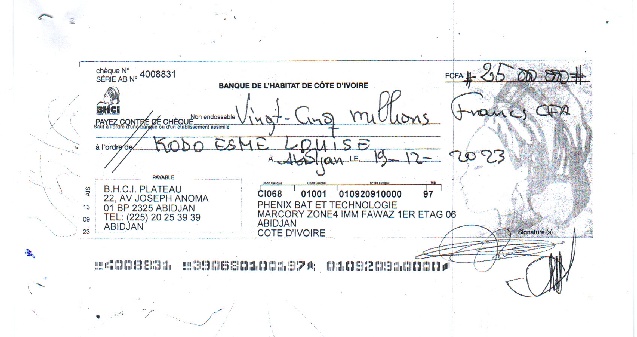 chèque N° 4008831
SÉRIE AB N°
BANQUE DE L'HABITAT DE CÔTE D'IVOIRE
FCFA # 25 000 000 #
BHCI
Non endossable
PAYEZ CONTRE DE CHÈQUE Vingt-Cinq millions Francs CFA
à l'ordre de KODO ESME LOUISE
A Abidjan LE 19-12-2023
PAYABLE
B.H.C.I. PLATEAU
22, AV JOSEPH ANOMA
01 BP 2325 ABIDJAN
TEL: (225) 20 25 39 39
ABIDJAN
CI068 01001 010920910000 97
PHENIX BAT ET TECHNOLOGIE
MARCORY ZONE4 IMM FAWAZ 1ER ETAG 06
ABIDJAN
COTE D'IVOIRE
Signature (s)